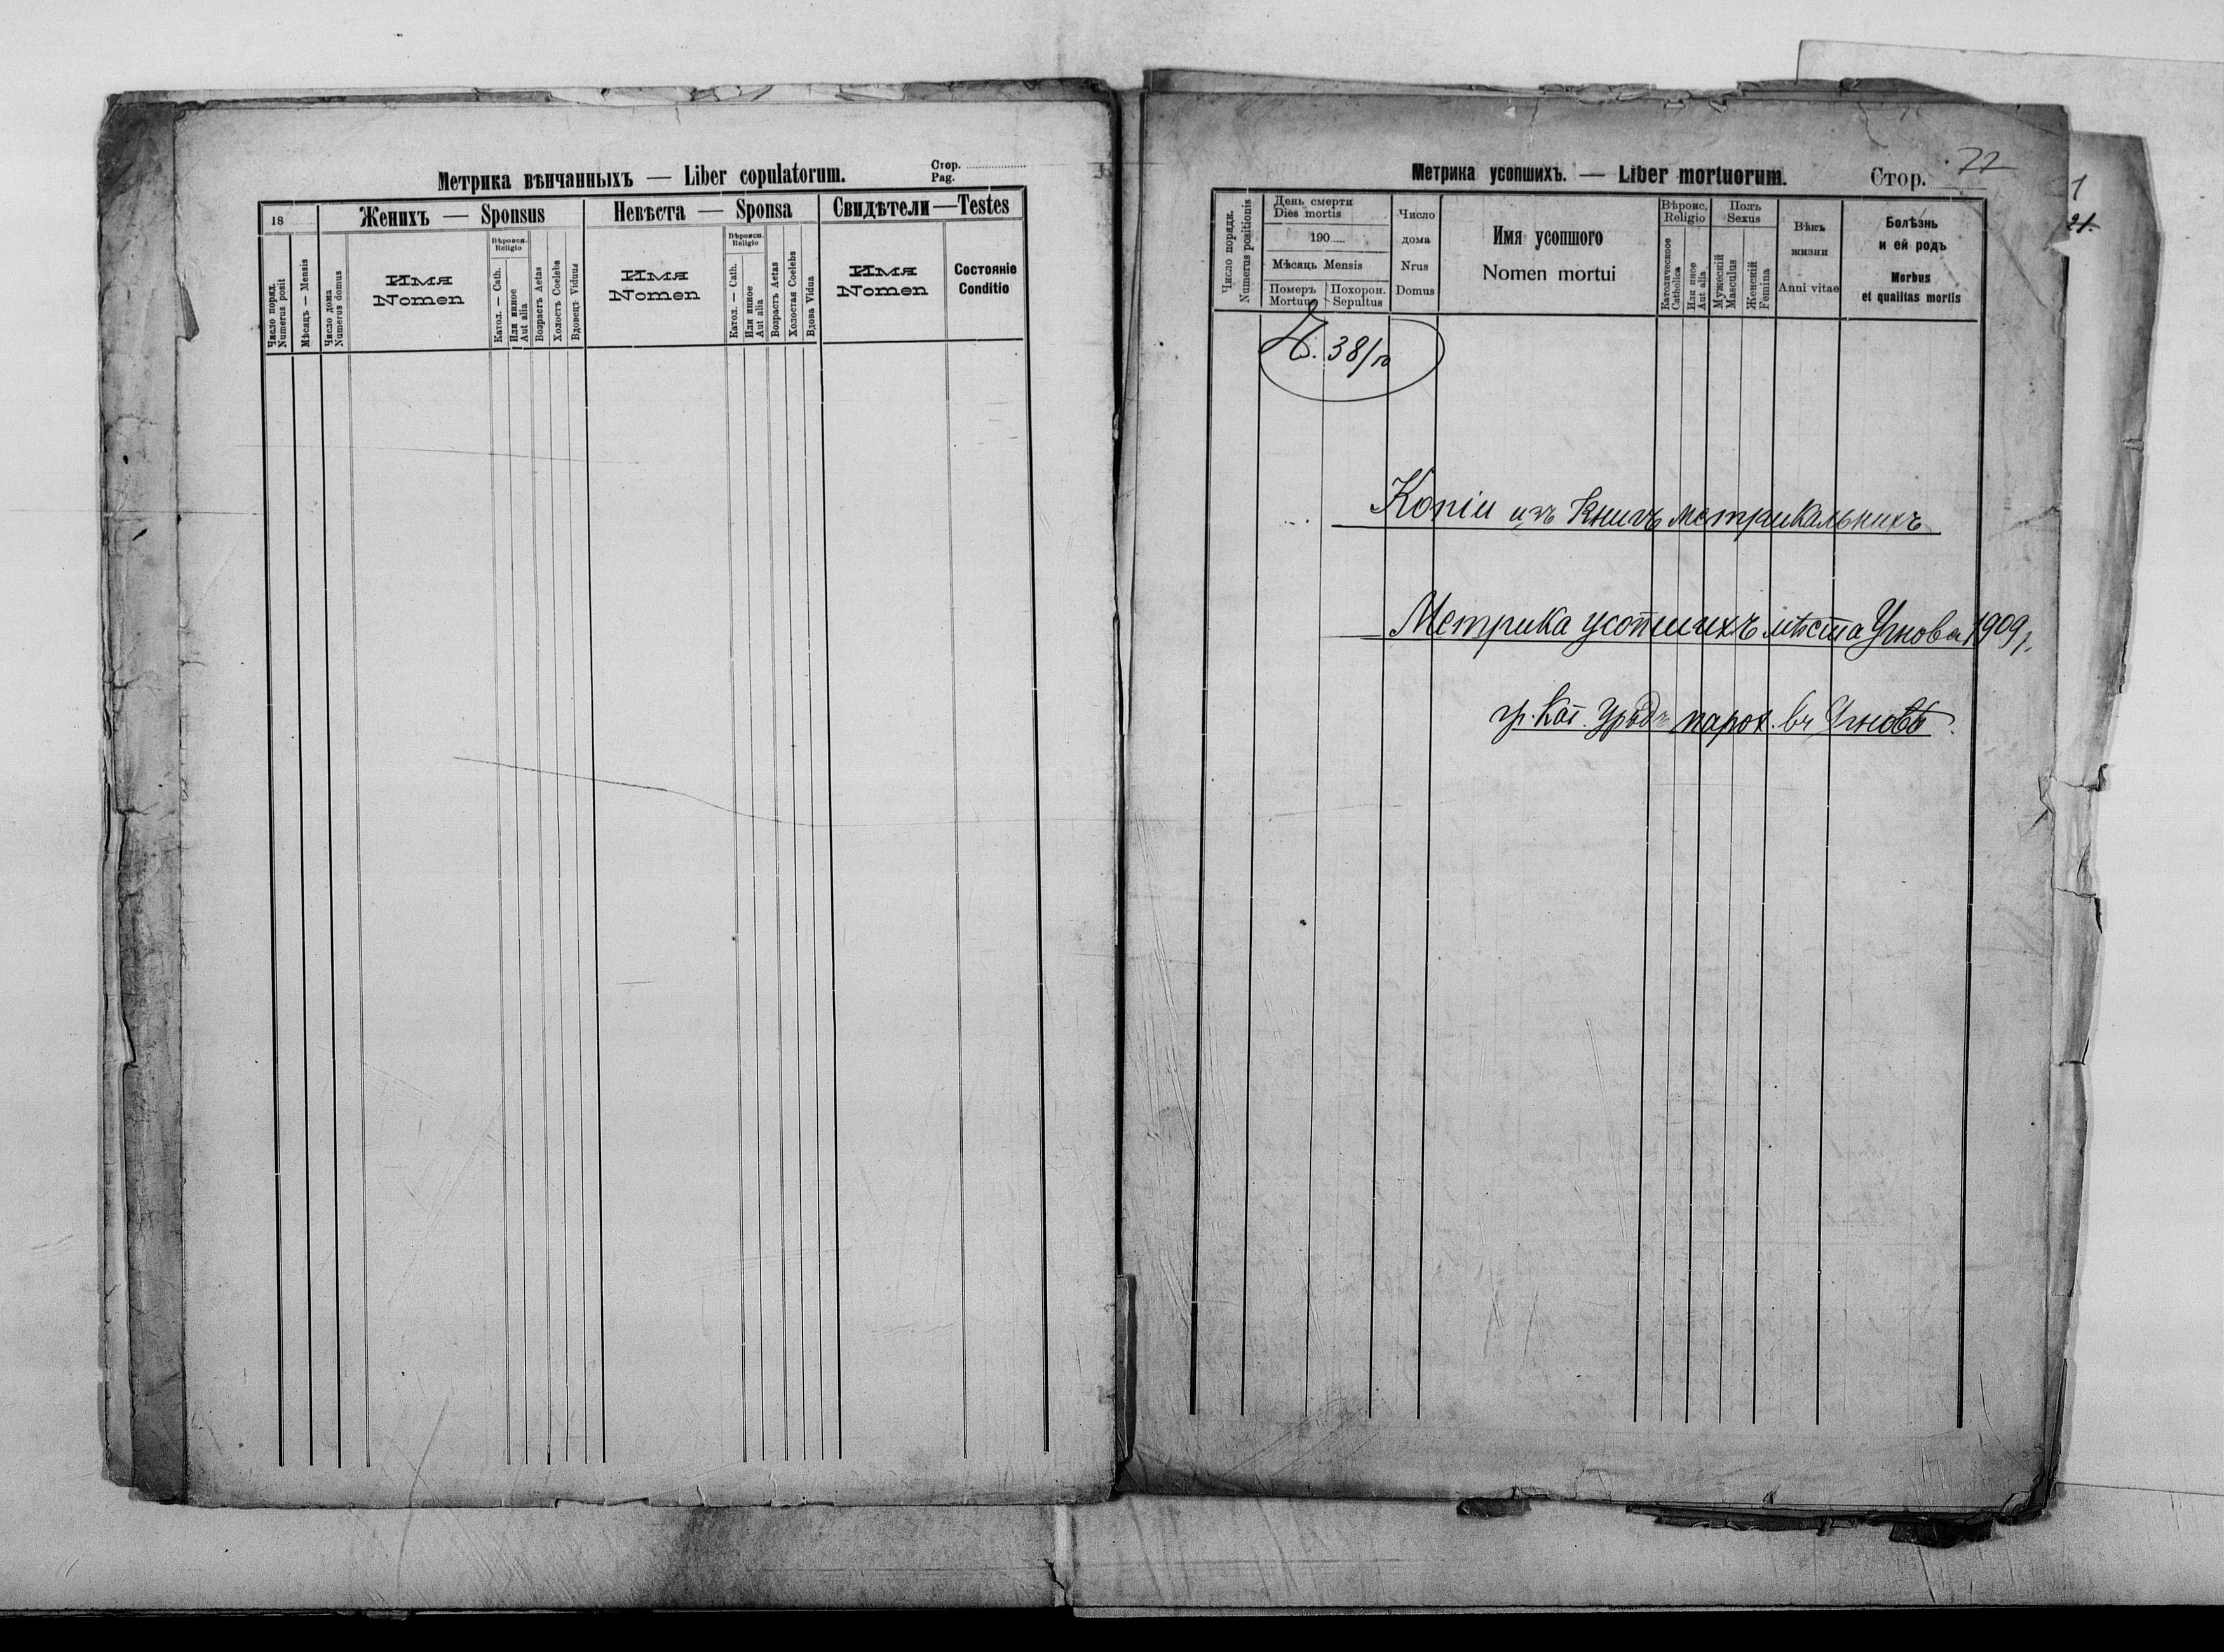 Метрика вѣнчанныхъ — Liber copulatorum.
Стор.
Pag.
18
Женихъ — Sponsus
Невѣста — Sponsa
Свидѣтели — Testes
Число поряд.
Numerus posit
Мѣсяцъ — Mensis
Число дома
Numerus domus
Имя
Nomen
Вѣроисп.
Religio
Катол. — Cath.
Или инное
Aut alia
Возрастъ Aetas
Холостъ Coelebs
Вдовецъ Viduus
Имя
Nomen
Вѣроисп.
Religio
Катол. — Cath.
Или инное
Aut alia
Возрастъ Aetas
Холостая Coelebs
Вдова Vidua
Имя
Nomen
Состояніе
Conditio
Метрика усопшихъ. — Liber mortuorum.
Стор. 22
Число порядк.
Numerus positionis
День смерти
Dies mortis
190
Мѣсяцъ Mensis
Померъ
Mortuus
Похорон.
Sepultus
Число
дома
Nrus
Domus
Имя усопшого
Nomen mortui
Вѣроис.
Religio
Католическое
Catholica
Или инное
Aut alia
Полъ
Sexus
Мужескій
Masculus
Женскій
Femina
Вѣкъ
жизни
Anni vitae
Болѣзнь
и ей родъ
Morbus
et qualitas mortis
Ч. 38/10
Копіи изъ книгъ метрикальнихъ
Метрика усопшихъ мѣста Угнова 1909 р.
гр. кат. Урядъ парох. въ Угновѣ.
1
21.